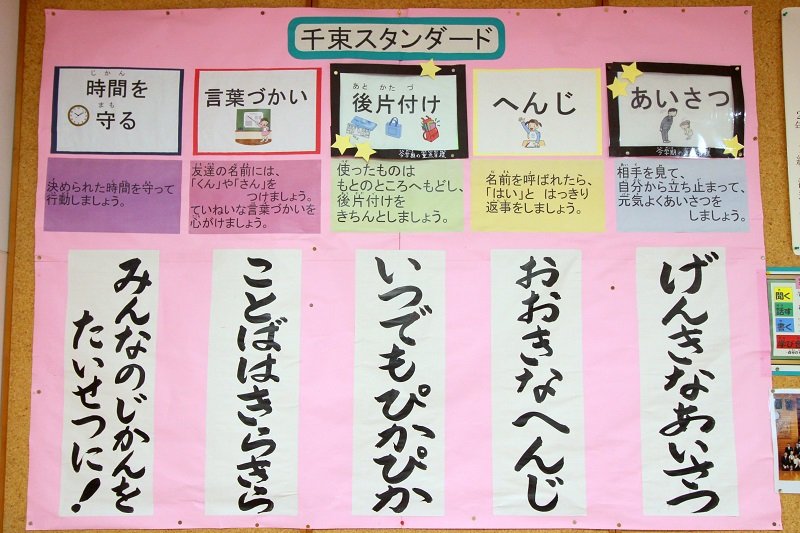 千束スタンダード
あいさつ
相手を見て、
自分から立ち止まって、
元気よくあいさつを
しましょう。
げんきなあいさつ
へんじ
名前を呼ばれたら、
「はい」と はっきり
返事をしましょう。
おおきなへんじ
あと かた づ
後片付け
使ったものは
もとのところへもどし、
後片付けを
きちんとしましょう。
いつでもぴかぴか
言葉づかい
友達の名前には、
「くん」や「さん」を
つけましょう。
ていねいな言葉づかいを
心がけましょう。
ことばはきらきら
じ かん
時間を
まも
守る
決められた時間を守って
行動しましょう。
みんなのじかんを
たいせつに!
聞く
話す
書く